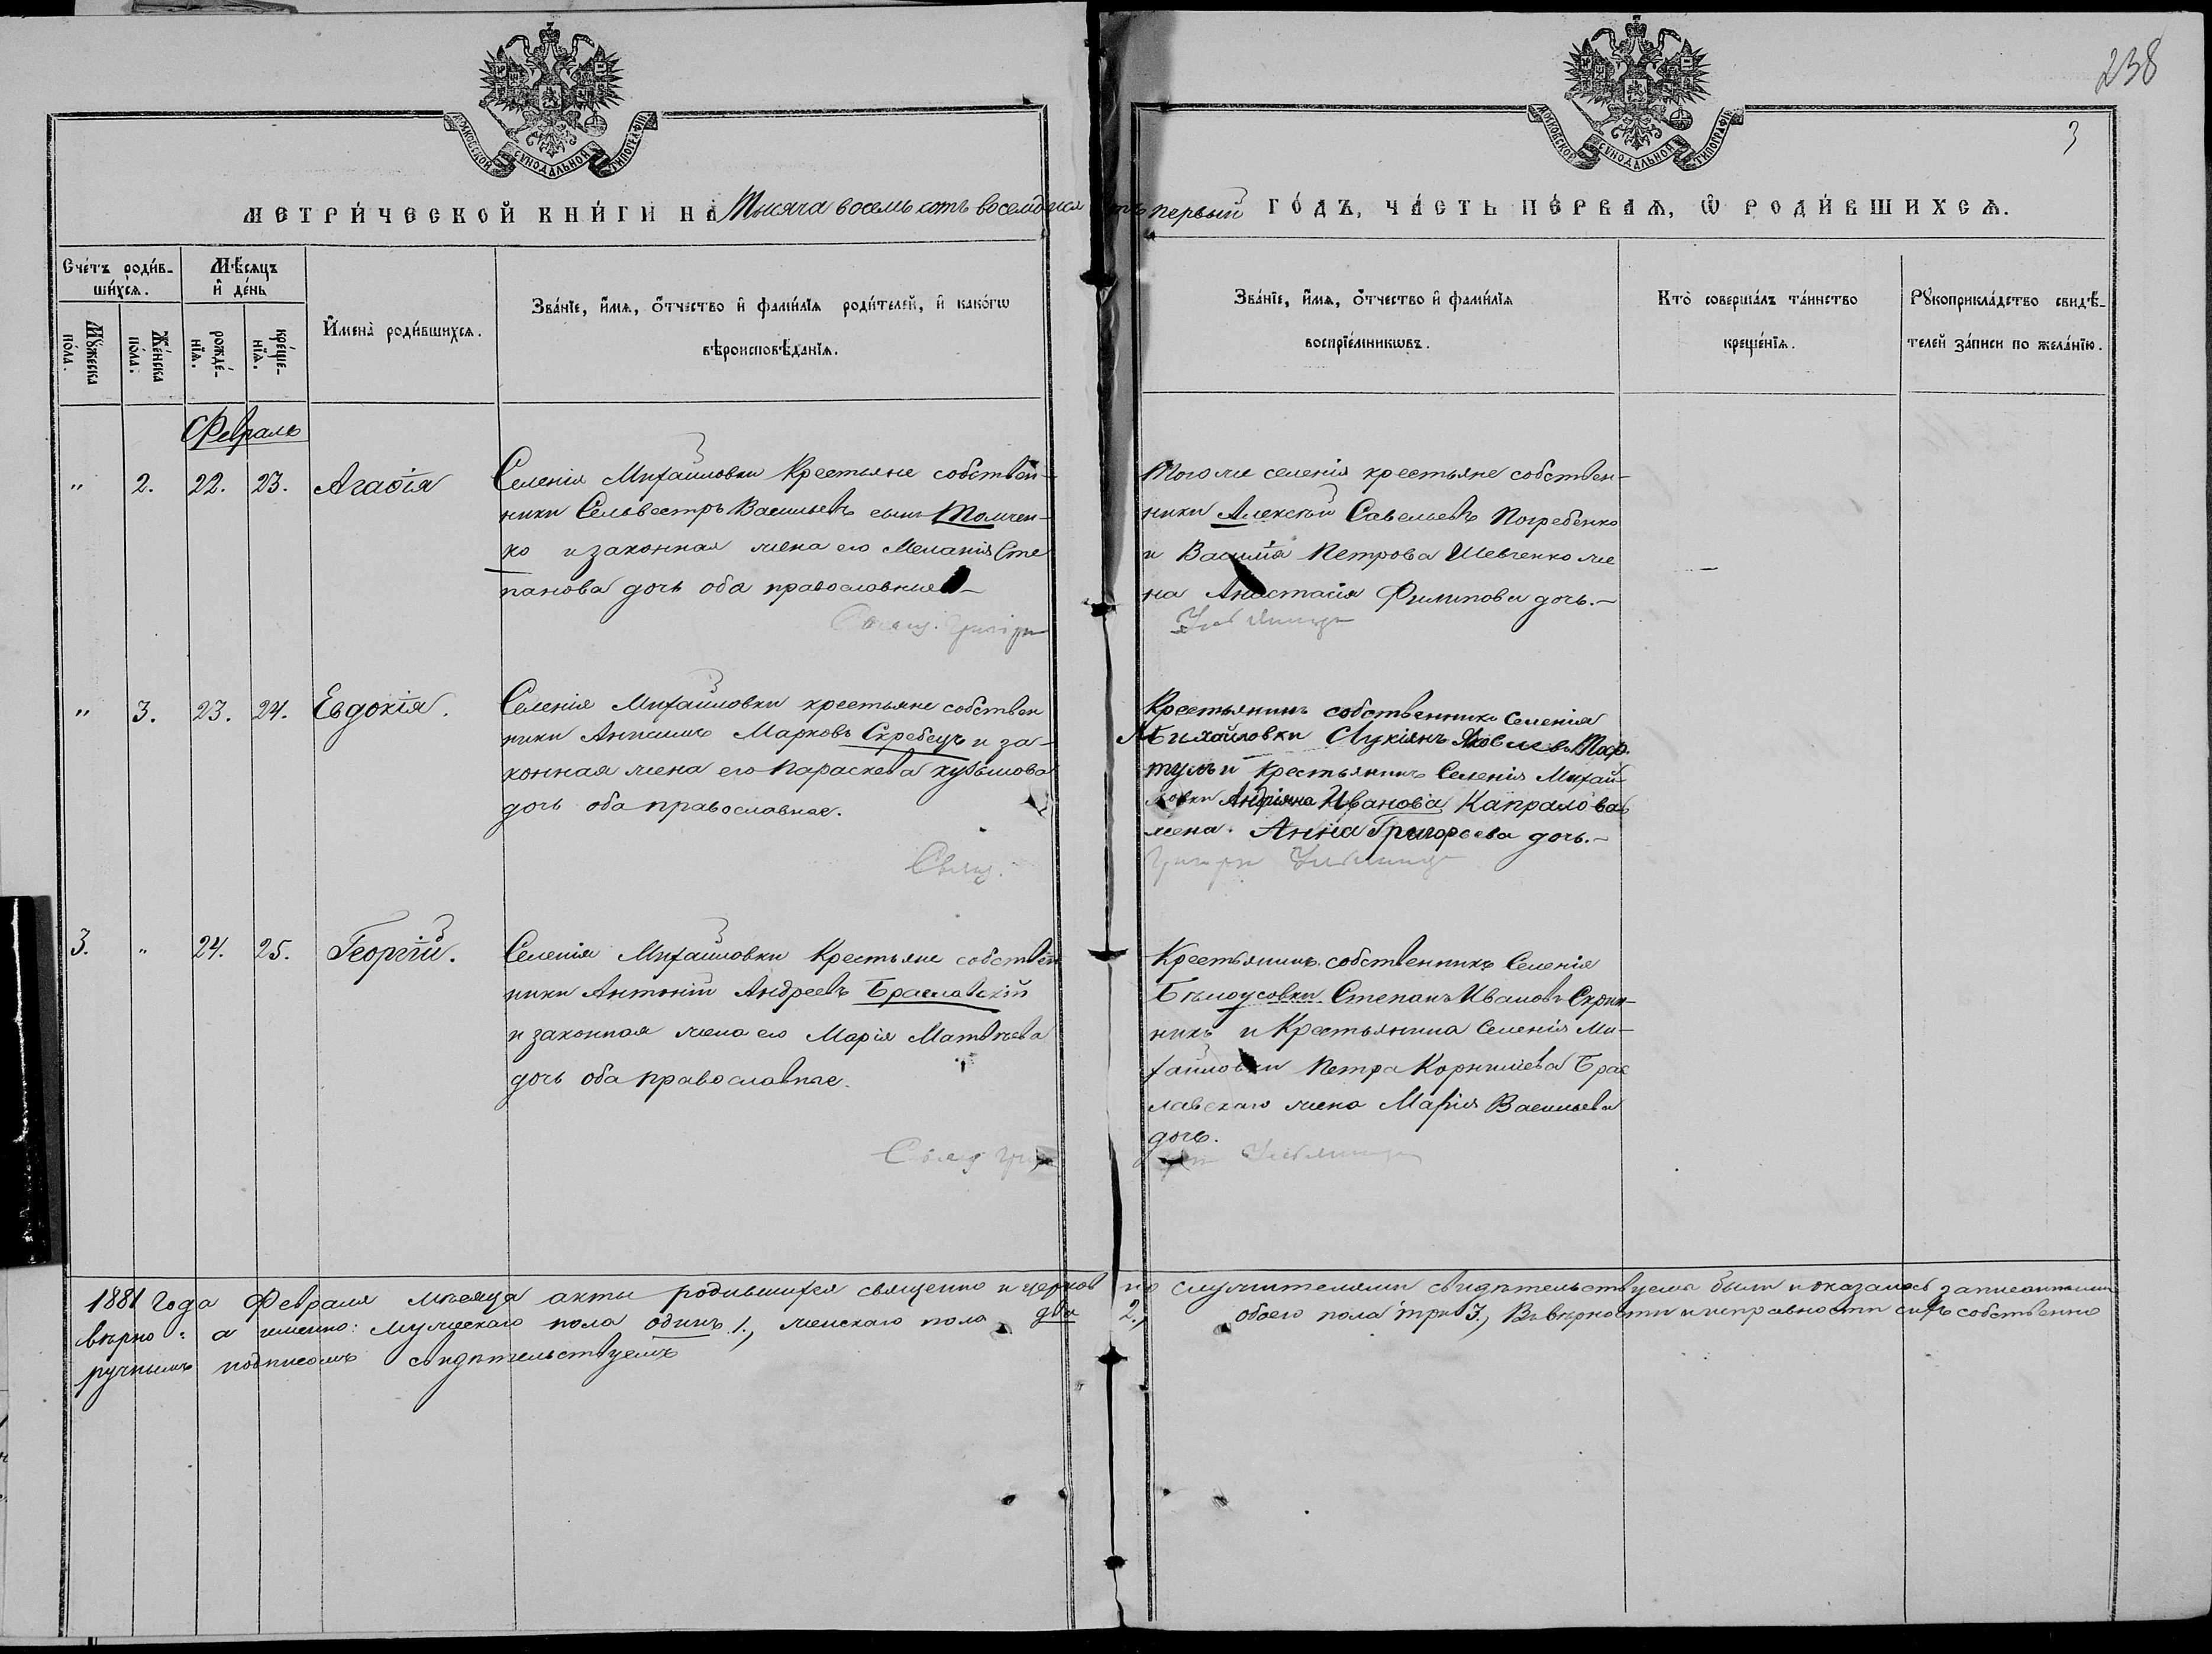 238
3
МОСКОВСКОЙ СѴНОДАЛЬНОЙ ТИПОГРАФІИ
МОСКОВСКОЙ СѴНОДАЛЬНОЙ ТИПОГРАФІИ
МЕТРИ́ЧЕСКОЙ КНИ́ГИ НА Тысяча восемь сотъ восемьдесятъ первый ГО́ДЪ, ЧА́СТЬ ПЕ́РВАѦ, Ѿ РОДИ́ВШИХСѦ.
Сче́тъ роди́в-
шихсѧ.
Мꙋ́жеска по́ла.
Же́нска по́ла.
Мѣ́сѧцъ
и҆ де́нь
рожде́-
нїѧ.
креще́-
нїѧ.
И҆мена̀ роди́вшихсѧ.
Зва́нїе, и҆́мѧ, ѻ҆́тчество и҆ фами́лїѧ роди́телей, и҆ како́гѡ
вѣроисповѣ́данїѧ.
Зва́нїе, и҆́мѧ, ѻ҆́тчество и҆ фами́лїѧ
воспрїе́мникѡвъ.
Кто̀ соверша́лъ та́инство
креще́нїѧ.
Рꙋкоприкла́дство свидѣ́-
телей за́писи по жела́нїю.
Февраль
" 2. 22. 23. Агафія
Селенія Михайловки Крестьяне собствен-
ники Сельвестръ Васильевъ сынъ Томчен-
ко и законная жена его Меланія Сте
панова дочь оба православные
Свящ. Григорій
Того же селенія крестьяне собствен-
ники Алексѣй Савельевъ Погребенко
и Василія Петрова Шевченко же
на Анастасія Филипова дочь.
" 3. 23. 24. Евдокія.
Селенія Михайловки крестьяне собствен
ники Анисимъ Марковъ Скребецъ и за-
конная жена его Параскева Кузьмова
дочь оба православные.
Свящ.
Крестьянинъ собственникъ Селенія
Михайловки Лукіянъ Яковлевъ
и крестьянинъ Селенія Михай-
ловки Андріяна Иванова Капралова
жена Анна Григорьева дочь.
3. " 24. 25. Георгій.
Селенія Михайловки Крестьяне собствен
ники Антоній Андреевъ Браславскій
и законная жена его Марія Матвѣева
дочь оба православные.
Свящ
Крестьянинъ собственникъ Селенія
Бѣлоусовки Степанъ Ивановъ Скрип-
никъ и Крестьянина Селенія Ми-
хайловки Петра Корнилиева Брас
лавскаго жена Марія Васильева
дочь.
1881 Года Февраля мѣсяца акты родившихся священно и церковно служителями свидѣтельствуемы были и оказались записанными
вѣрно: а именно: мужескаго пола одинъ 1., женскаго пола два 2., обоего пола три 3., Въ вѣрности и исправности сихъ собственно
ручнымъ подписомъ свидѣтельствуемъ